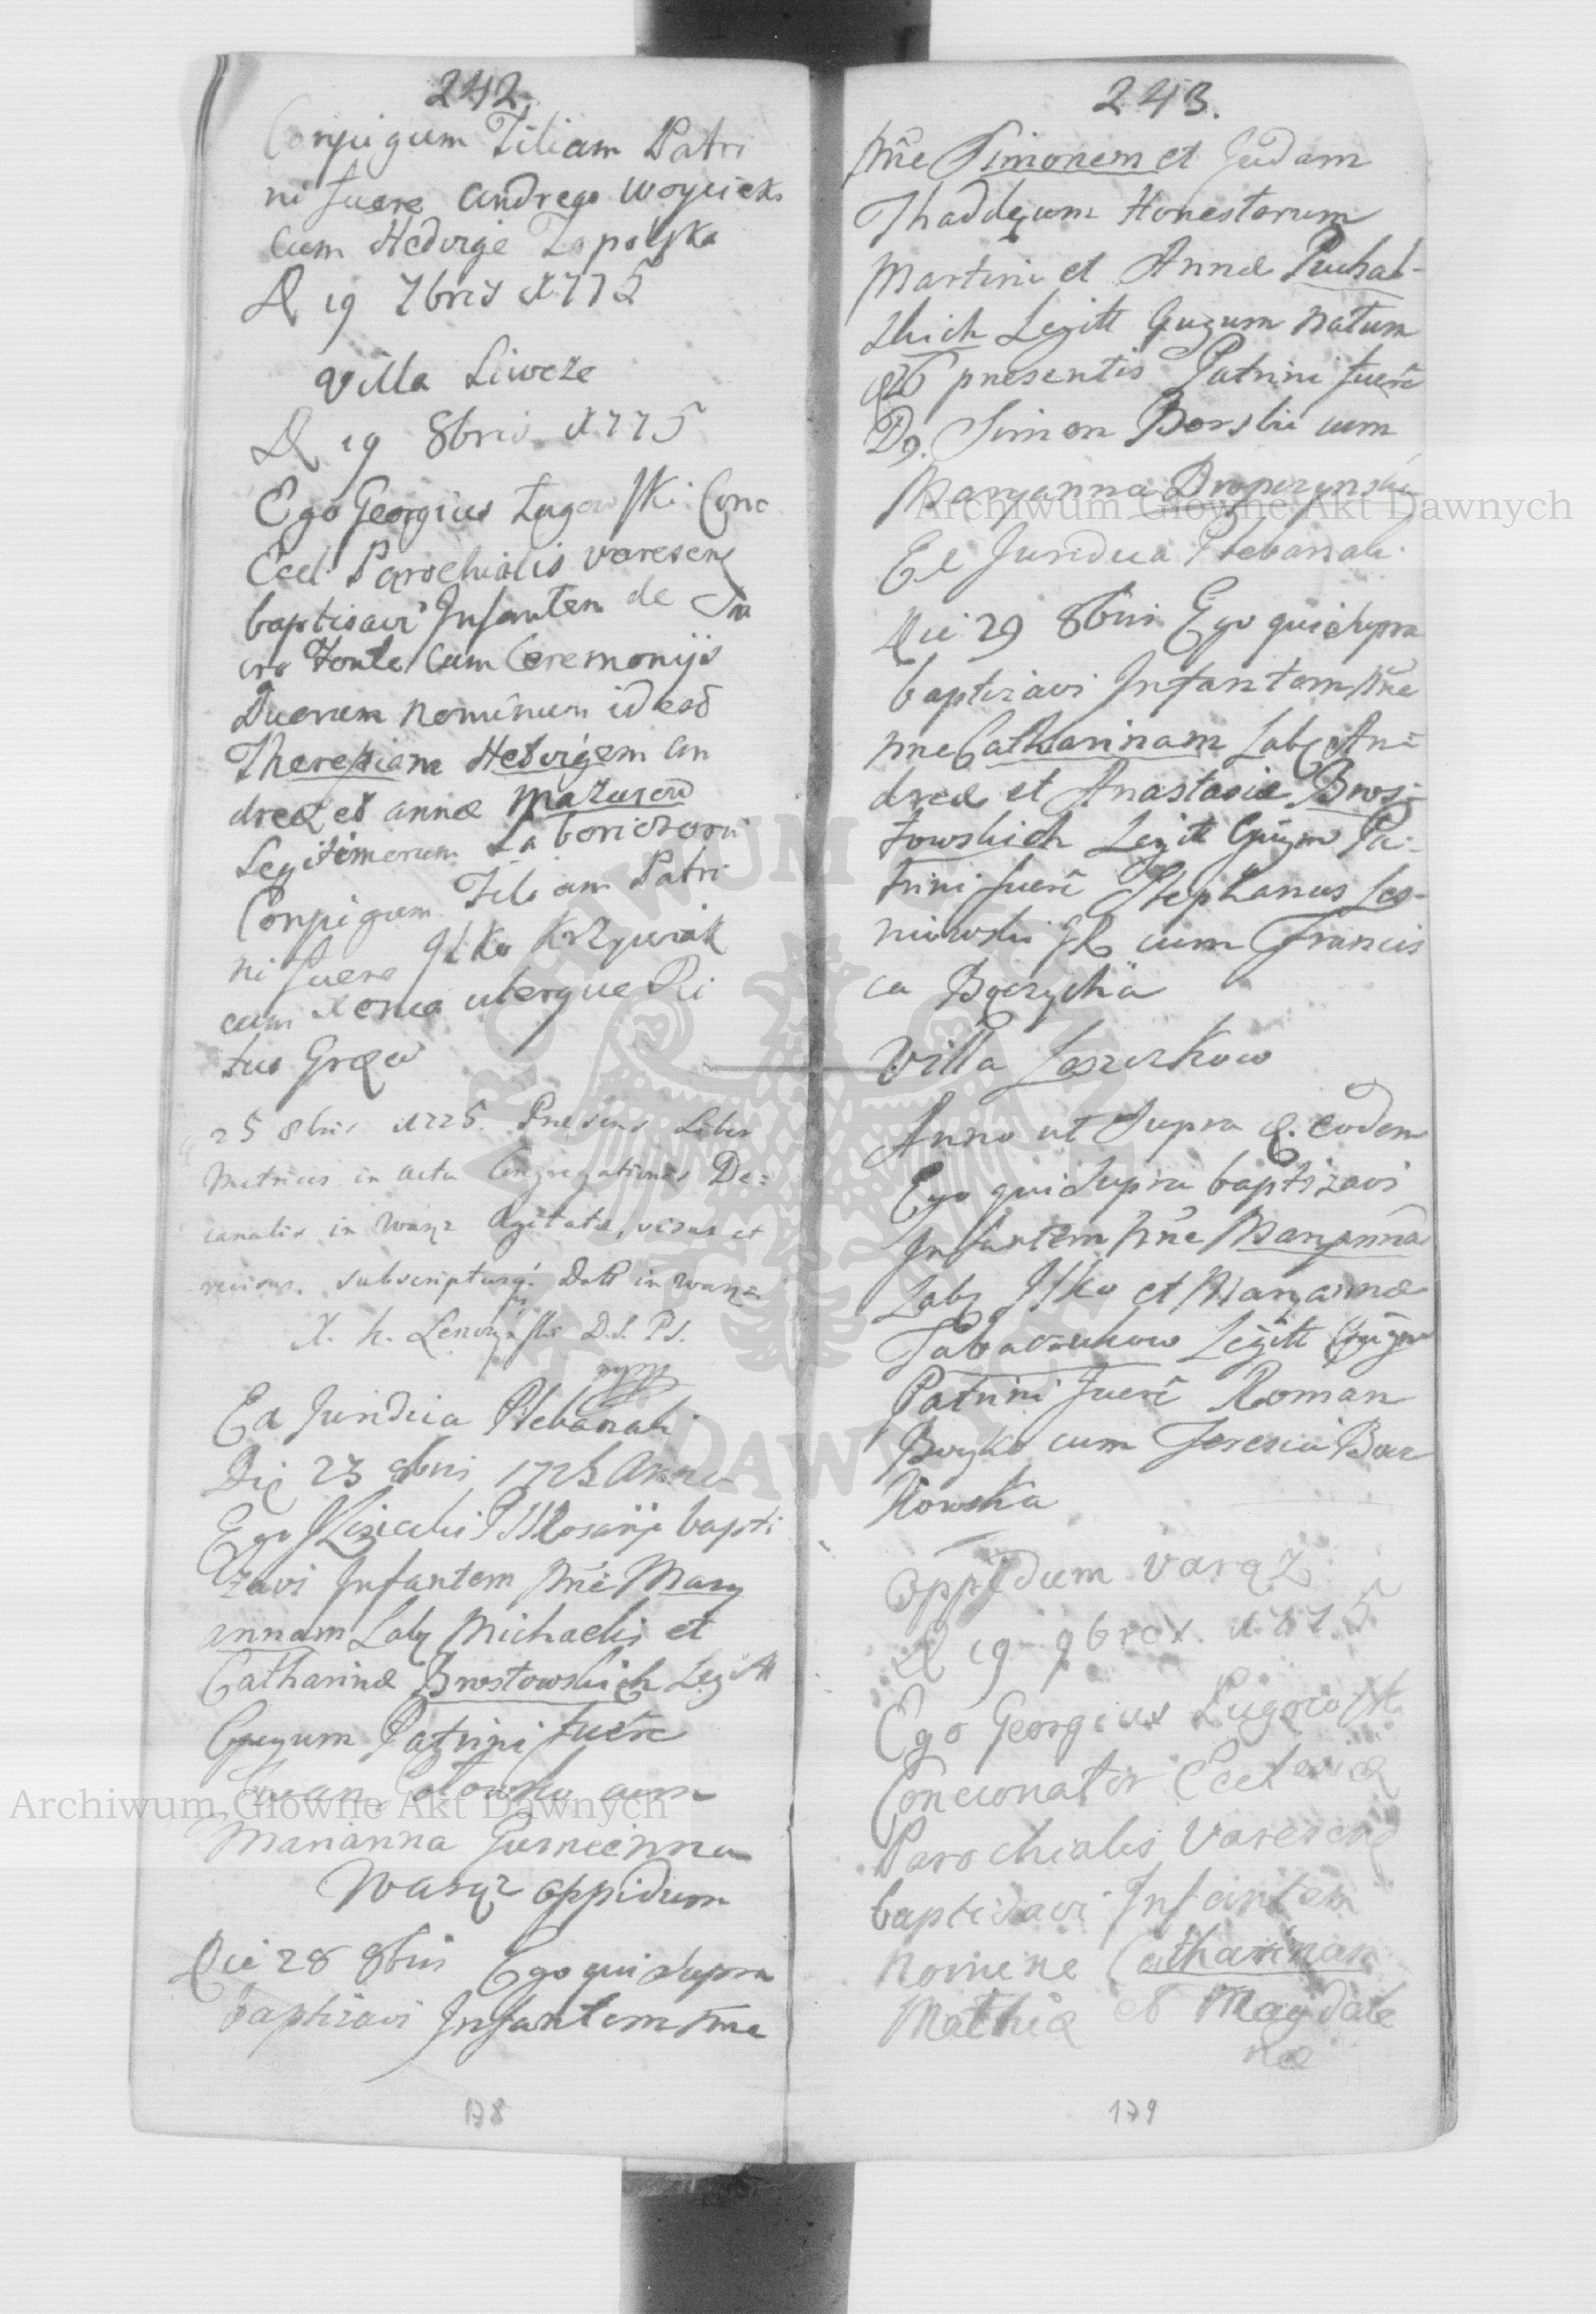 242.
Conjugum Filiam Patri
ni fuere Andreas Woycicki
cum Hedvige Zapolska
D 19 7bris 1775
Villa Liwcze
D 19 8bris 1775
Ego Georgius Ługowski Conc
Eccl Parochialis varesens
baptisavi Infantem de Sa
cro Fonte Cum Ceremonijs
Duorum nominum id est
Theresiam Hedvigem An
dreæ et annæ Mazurow
Legitimorum Laboriosorum
Conjugum Filiam Patri
ni fuere Ilko Krzywiak
cum uterque Ri
tus Græci
25 8bris 1775. Presens Liber
Metrices in actu Congregationis De=
canalis in Waręż Agitatæ, visus et
subscriptusq. Datt in Waręż
Ex Juridica Plebanali
Die 23 8bris Anno
Ego Rosarij bapti
zavi Infantem nne Mary
annam Lab Michaelis et
Catharinæ Brostowskich Legitt
Cjugum Patrini fuere
Iwan cum
Marianna
Waręż oppidum
Die 28 8bris Ego qui supra
baptizavi Infantem nne
178
243.
nne Simonem et Judam
Thaddeum Honestorum
Martini et Annæ Puchal-
skich Legitt Cjugum natum
26 presentis Patrini fuere
Simon Borski cum
Maryanna
Ex Juridica Plebanali
Die 29 8bris Ego qui supra
baptizavi Infantem nne
nne Catharinam Lab An=
dreæ et Anastasiæ Bros=
towskich Legitt Cjugum Pa-
trini fuere Stephanus Les-
niowski cum Francis
ca
Villa Leszczkow
Anno ut supra d. eodem
Ego qui supra baptizavi
Infantem nne Maryanna
Lab Ilko et Maryannæ
Legitt Cjugum
Patrini fuere Roman
cum Teresia Bar
kowska
Oppidum Varąż
D 19 9bris 1775
Ego Georgius Ługowsk
Concionator Ecclesiæ
Parochialis Varesens
baptisavi Infantem
nomine Catharinam
Mathiæ et Magdale
næ
179
Archiwum Główne Akt Dawnych
Archiwum Główne Akt Dawnych